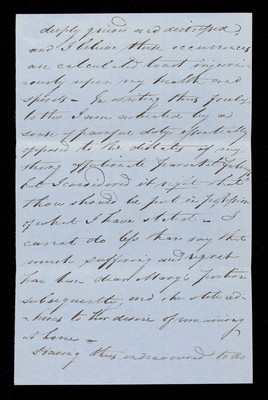 deeply grieved and distressed,
and I believe these occurrences
are calculated to act injuri-
ously upon my health and
spirits - In writing thus freely
to thee I am actuated by a
sense of painful duty essentially
opposed to the dictates of my
strong affectionate parental feelings
but I considered it right that
thou should be put in possession
of what I have stated - I
cannot do less than say that
much suffering and regret
has been dear Mary's portion
subsequently, and she still ad-
heres to her desire of remaining
at home -
Having thus endeavoured to do